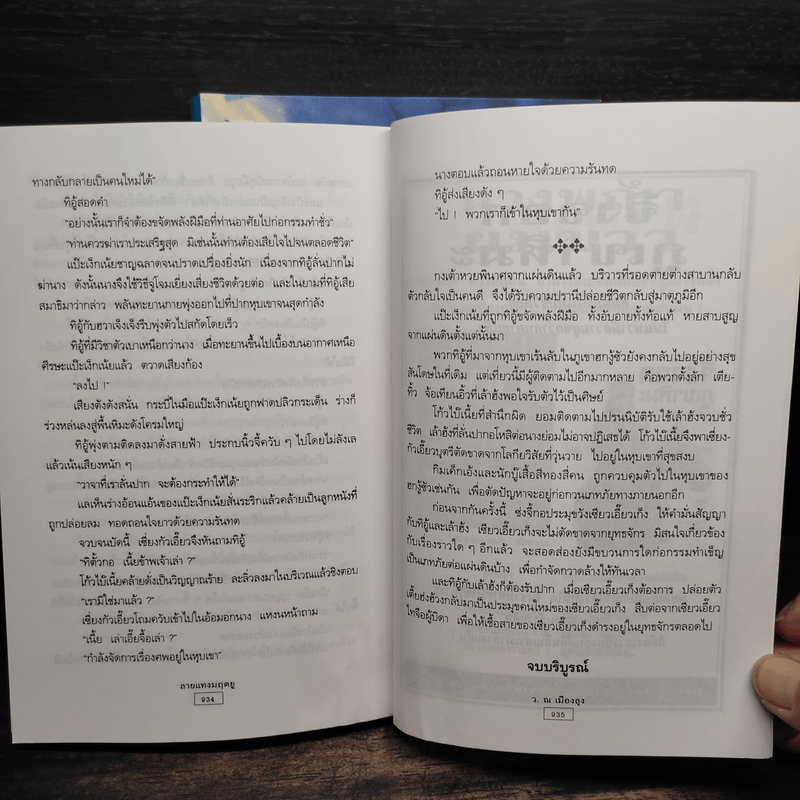 ทางกลับกลายเป็นคนใหม่ได้"
ทิอู้สอดคำ
"อย่างนั้นเราก็จำต้องขจัดพลังฝีมือที่ท่านอาศัยไปก่อกรรมทำชั่ว"
"ท่านควรฆ่าเราประเสริฐสุด มิเช่นนั้นท่านต้องเสียใจไปจนตลอดชีวิต"
แป๊ะเง็กเน้ยชาญฉลาดจนปราดเปรื่องยิ่งนัก เนื่องจากทิอู้ลั่นปากไม่
ฆ่านาง ดังนั้นนางจึงใช้วิธีจู่โจมเยี่ยงเสี่ยงชีวิตด้วยต่อ และในยามที่ทิอู้เสีย
สมาธิมาว่ากล่าว พลันทะยานกายพุ่งออกไปที่ปากหุบเขาจนสุดกำลัง
ทิอู้กับฮวาเจ็งเจ็งรีบพุ่งตัวไปสกัดโดยเร็ว
ทิอู้ที่มีวิชาตัวเบาเหนือกว่านาง เมื่อทะยานขึ้นไปเบื้องบนอากาศเหนือ
ศีรษะแป๊ะเง็กเน้ยแล้ว ตวาดเสียงก้อง
"ลงไป !"
เสียงดังดังสนั่น กระบี่ในมือแป๊ะเง็กเน้ยถูกฟาดปลิวกระเด็น ร่างก็
ร่วงหล่นลงสู่พื้นหิมะดังโครมใหญ่
ทิอู้พุ่งตามติดลงมาดั่งสายฟ้า ประกบนิ้วจี้ควับ ๆ ไปโดยไม่ลังเล
แล้วเน้นเสียงหนัก ๆ
"วาจาที่เราลั่นปาก จะต้องกระทำให้ได้"
แลเห็นร่างอ้อนแอ้นของแป๊ะเง็กเน้ยสั่นระริกแล้วคล้ายเป็นลูกหนังที่
ถูกปล่อยลม ทอดถอนใจยาวด้วยความรันทด
จวบจนบัดนี้ เซี่ยงกัวเอี๊ยวจึงหันถามทิอู้
"ทิตั้วกอ เนี้ยข้าพเจ้าเล่า ?"
โก้วไบ๊เนี้ยคล้ายดั่งเป็นวิญญาณร้าย ละลิ่วลงมาในบริเวณแล้วชิงตอบ
"เรามิใช่มาแล้ว ?"
เซี่ยงกัวเอี๊ยวโถมควับเข้าไปในอ้อมอกนาง แหงนหน้าถาม
"เนี้ย เล่าเอี๊ยจื้อเล่า ?"
"กำลังจัดการเรื่องศพอยู่ในหุบเขา"
ลายแทงมฤตยู
934
นางตอบแล้วถอนหายใจด้วยความรันทด
ทิอู้ส่งเสียงดัง ๆ
"ไป ! พวกเราก็เข้าในหุบเขากัน"
กงเต้าหวยพินาศจากแผ่นดินแล้ว บริวารที่รอดตายต่างสาบานกลับ
ตัวกลับใจเป็นคนดี จึงได้รับความปรานีปล่อยชีวิตกลับสู่มาตุภูมิอีก
แป๊ะเง็กเน้ยที่ถูกทิอู้ขจัดพลังฝีมือ ทั้งอับอายทั้งท้อแท้ หายสาบสูญ
จากแผ่นดินตั้งแต่นั้นมา
พวกทิอู้ที่มาจากหุบเขาเร้นลับในภูเขาฮกงู้ซัวยังคงกลับไปอยู่อย่างสุข
สันโดษในที่เดิม แต่เที่ยวนี้มีผู้ติดตามไปอีกมากหลาย คือพวกตั้งลัก เตีย-
ทิ้ว จ้อเทียนอี้วที่เล้าฮั้งพอใจรับตัวไว้เป็นศิษย์
โก้วไบ๊เนี้ยที่สำนึกผิด ยอมติดตามไปปรนนิบัติรับใช้เล้าฮั้งจวบชั่ว
ชีวิต เล้าฮั้งที่ลั่นปากอโหสิต่อนางย่อมไม่อาจปฏิเสธได้ โก้วไบ๊เนี้ยจึงพาเซี่ยง-
กัวเอี๊ยวบุตรีตัดขาดจากโลกียวิสัยที่วุ่นวาย ไปอยู่ในหุบเขาที่สุขสงบ
กิมเค็กเอ้งและนักบู๊เสื้อสีทองสี่คน ถูกควบคุมตัวไปในหุบเขาของ
ฮกงู้ซัวเช่นกัน เพื่อตัดปัญหาจะอยู่ก่อกวนเภทภัยทางภายนอกอีก
ก่อนจากกันครั้งนี้ ซ่งจี้กอประมุขวังเซียวเอี๊ยวเก็ง ให้คำมั่นสัญญา
กับทิอู้และเล้าฮั้ง เซียวเอี๊ยวเก็งจะไม่ตัดขาดจากยุทธจักร มิสนใจเกี่ยวข้อง
กับเรื่องราวใด ๆ อีกแล้ว จะสอดส่องยังมีขบวนการใดก่อกรรมทำเข็ญ
เป็นเภทภัยต่อแผ่นดินบ้าง เพื่อกำจัดกวาดล้างให้ทันเวลา
และทิอู้กับเล้าฮั้งก็ต้องรับปาก เมื่อเซียวเอี๊ยวเก็งต้องการ ปล่อยตัว
เตี้ยฮ่งฮ้วงกลับมาเป็นประมุขคนใหม่ของเซียวเอี๊ยวเก็ง สืบต่อจากเซียวเอี๊ยว
ไทจือผู้บิดา เพื่อให้เชื้อสายของเซียวเอี๊ยวเก็งดำรงอยู่ในยุทธจักรตลอดไป
จบบริบูรณ์
ว. ณ เมืองลุง
935